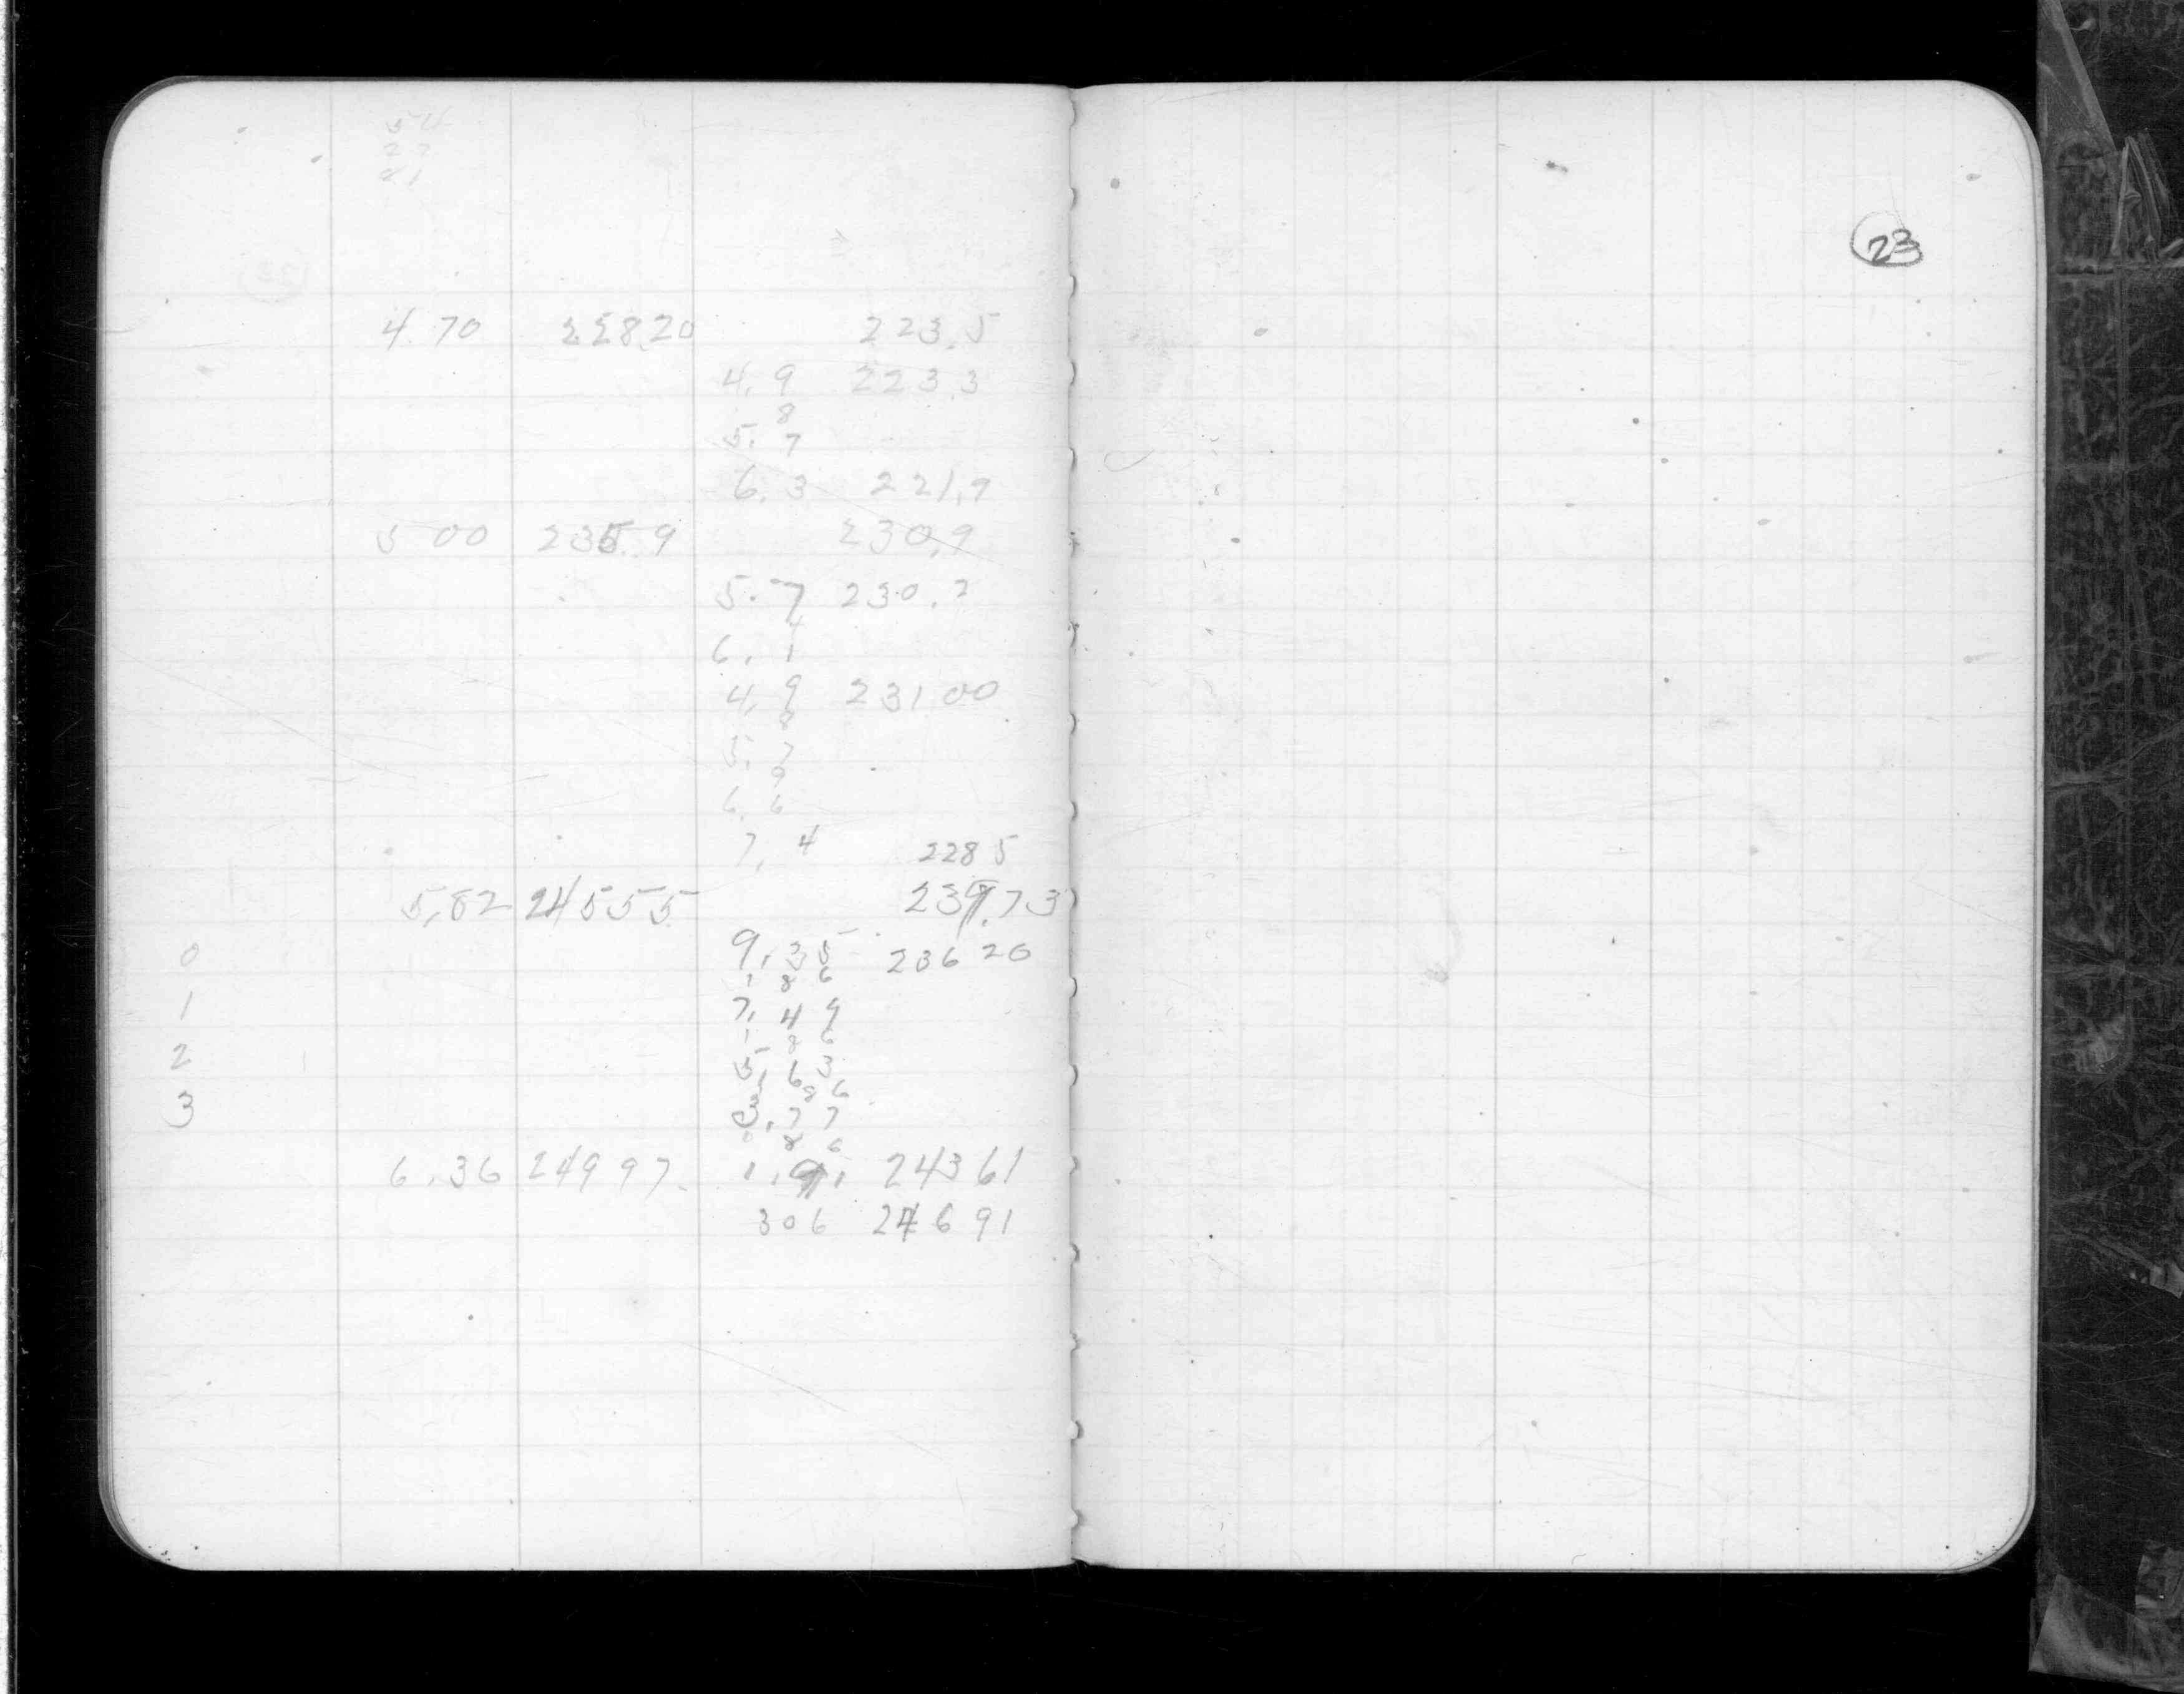 54
27
21
4.70 228.20 223.5
4.9 223.3
8
5.7
6.3 221.9
5 00 235.9 230.9
5.7 230.2
4
6.1
4.9 231 00
8
5.7
9
6.6
7.4 228 5
5.82 245 55 239.73
0 9.35 236 20
1 8 6
1 7.49
1 8 6
2 5.63
1 8 6
3 3.77
8 6
6.36 249 97 1.91 243 61
3 06 246 91
23